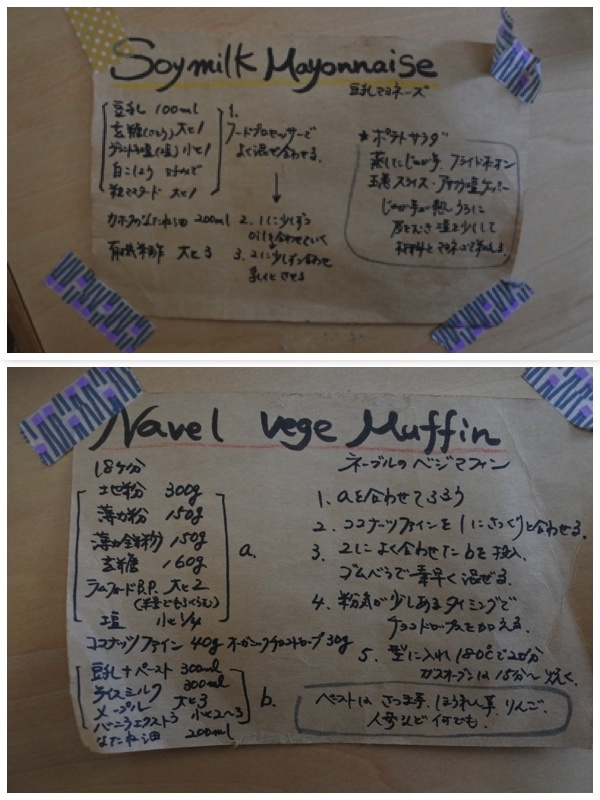 Soymilk Mayonnaise
豆乳マヨネーズ
豆乳 100ml
玄糖 大さじ1
小さじ1
白こしょう 好みで
粒マスタード 大さじ1
なたね油 200ml
有機米酢 大さじ3
1.
フードプロセッサーで
よく混ぜ合わせる。
2. 1に少しずつ
oilを合わせていく
3. 2に少しずつ合わせ
乳化させる
★ポテトサラダ
蒸したじゃが芋、フライドオニオン
スライス・
じゃが芋が熱いうちに
皮をむき 塩を少しして
Navel vege Muffin
ネーブルのベジマフィン
18ヶ分
地粉 300g
薄力粉 150g
薄力全粒粉 150g
玄糖 160g
ラムフォードB.P. 大さじ2
塩 小さじ1/4
a.
ココナッツファイン 40g オーガニックチョコドロップ 30g
豆乳+ペースト 300ml
ライスミルク 300ml
メープル 大さじ3
バニラエクストラ 小さじ2〜3
なたね油 200ml
b.
1. aを合わせてふるう
2. ココナッツファインを1にさっくりと合わせる。
3. 2によく合わせたbを投入、
ゴムべらで素早く混ぜる。
4. 粉気が少しあるタイミングで
チョコドロップを加える。
5. 型に入れ180℃で20分
ガスオーブンは15分〜焼く。
ペーストは さつま芋、ほうれん草、りんご、
人参など何でも。